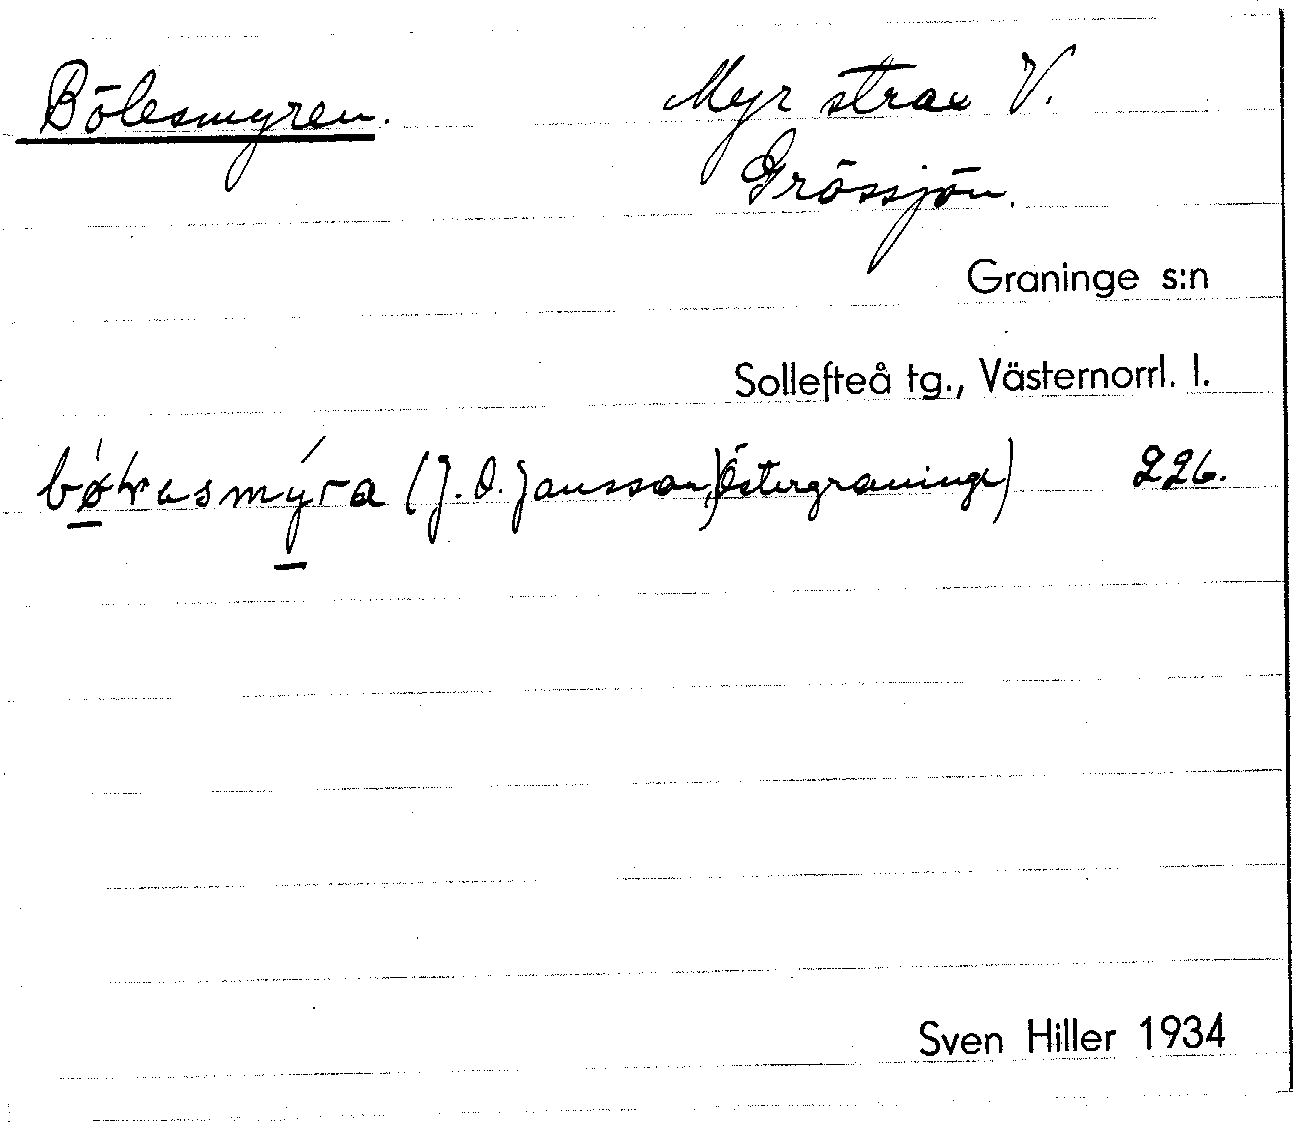 Bölesmyren.
Myr strax V.
Grössjön.
Graninge s:n
Sollefteå tg., Västernorrl. l.
(J. O. Jansson, Östergraninge) 226.
Sven Hiller 1934